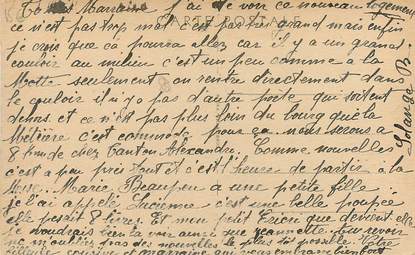 j'ai de voir ce nouveau logement
ce n'est pas trop mal c'est pas très grand mais enfin
CARTE POSTALE
je crois que ça pourra allez car il y a un grand
couloir au milieu c'est un peu comme à la
Motte seulement on rentre directement dans
le couloir il n'y a pas d'autre porte qui soit en
dehors et ce n'est pas plus loin du bourg que la
Métière c'est commode pour ça. nous serons à
8 km de chez Tonton Alexandre. Comme nouvelles
c'est a peu près tout et c'est l'heure de partir a la
Marie Beaupeu a une petite fille
je l'ai appelé Lucienne c'est une belle poupée
elle pesait 8 livres. Et mon petit que devient elle
je voudrais bien la voir ainsi que jeannette. Au revoir
ne m'oubliez pas des nouvelles le plus tôt possible Votre
cousine et marraine qui vous embrasse bien fort